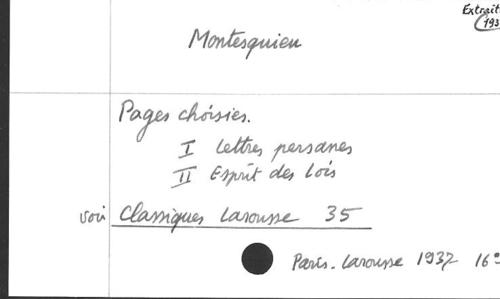 Extrait
193
Montesquieu
Pages choisies.
I Lettres persanes
II Esprit des Lois
voir Classiques Larousse 35
Paris. Larousse 1937 16°